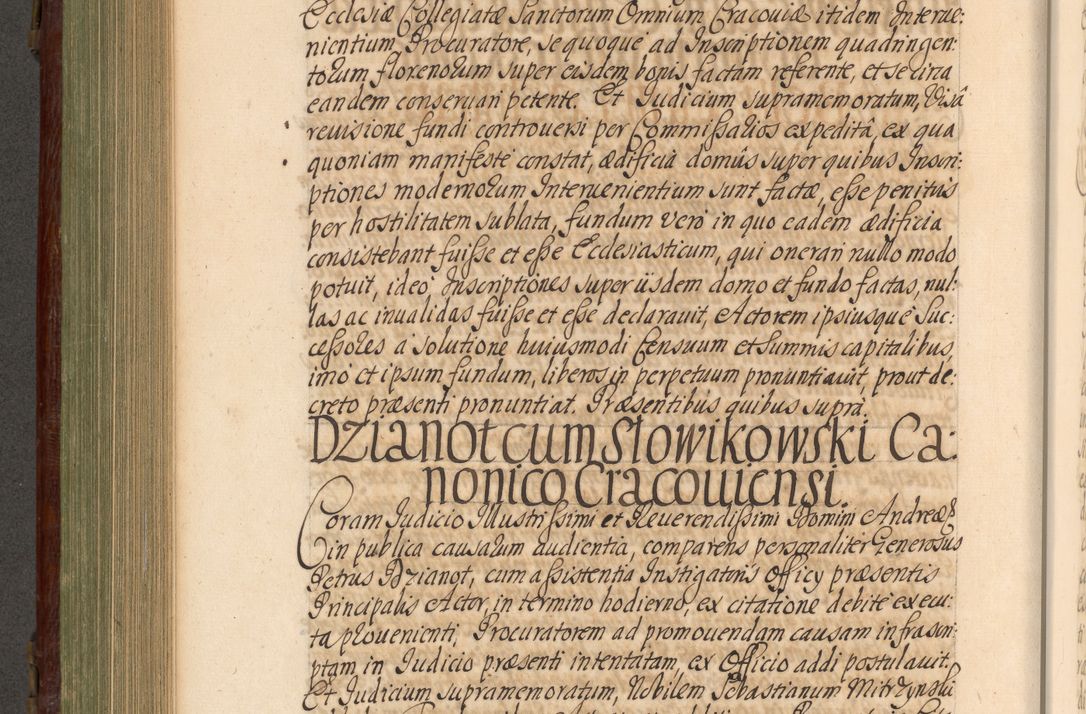 Ecclesiæ Collegiatæ Sanctorum Omnium Cracoviæ itidem Interue:
nientium Procuratore, se quoque ad Inscriptionem quadringen:
torum florenorum super eisdem bonis factam referente, et se circa
eandem conseruari petente. Et Judicium supramemoratum, Visâ
reuisione fundi controuersi per Commissarios expeditâ, ex qua
quoniam manifestè constat, ædificia domûs super quibus Inscri:
ptiones modernorum Interuenientium sunt factæ, esse penitùs
per hostilitatem sublata, fundum verò in quo eadem ædificia
consistebant fuisse et esse Ecclesiasticum, qui onerari nullo modo
potuit, ideò Inscriptiones super iisdem domo et fundo factas, nul:
las ac inualidas fuisse et esse declarauit, Actorem ipsiusque Suc:
cessores à solutione huiusmodi Censuum et Summis capitalibus,
imò et ipsum fundum, liberos in perpetuum pronuntiauit, prout de:
creto præsenti pronuntiat. Præsentibus quibus suprà.
Dzianot cum Słowikowski Ca:
nonico Cracouiensi.
Coram Judicio Illustrissimi et Reuerendissimi Domini Andreæ &
in publica causarum audientia, comparens personaliter Generosus
Petrus Dzianot, cum assistentia Instigatoris Officy præsentis
Principalis Actor, in termino hodierno, ex citatione debitè execu:
ta prouenienti, Procuratorem ad promouendam causam infrascri:
ptam in Judicio præsenti intentatam, ex Officio addi postulauit.
Et Judicium supramemoratum, Nobilem Sebastianum Mitrzynski